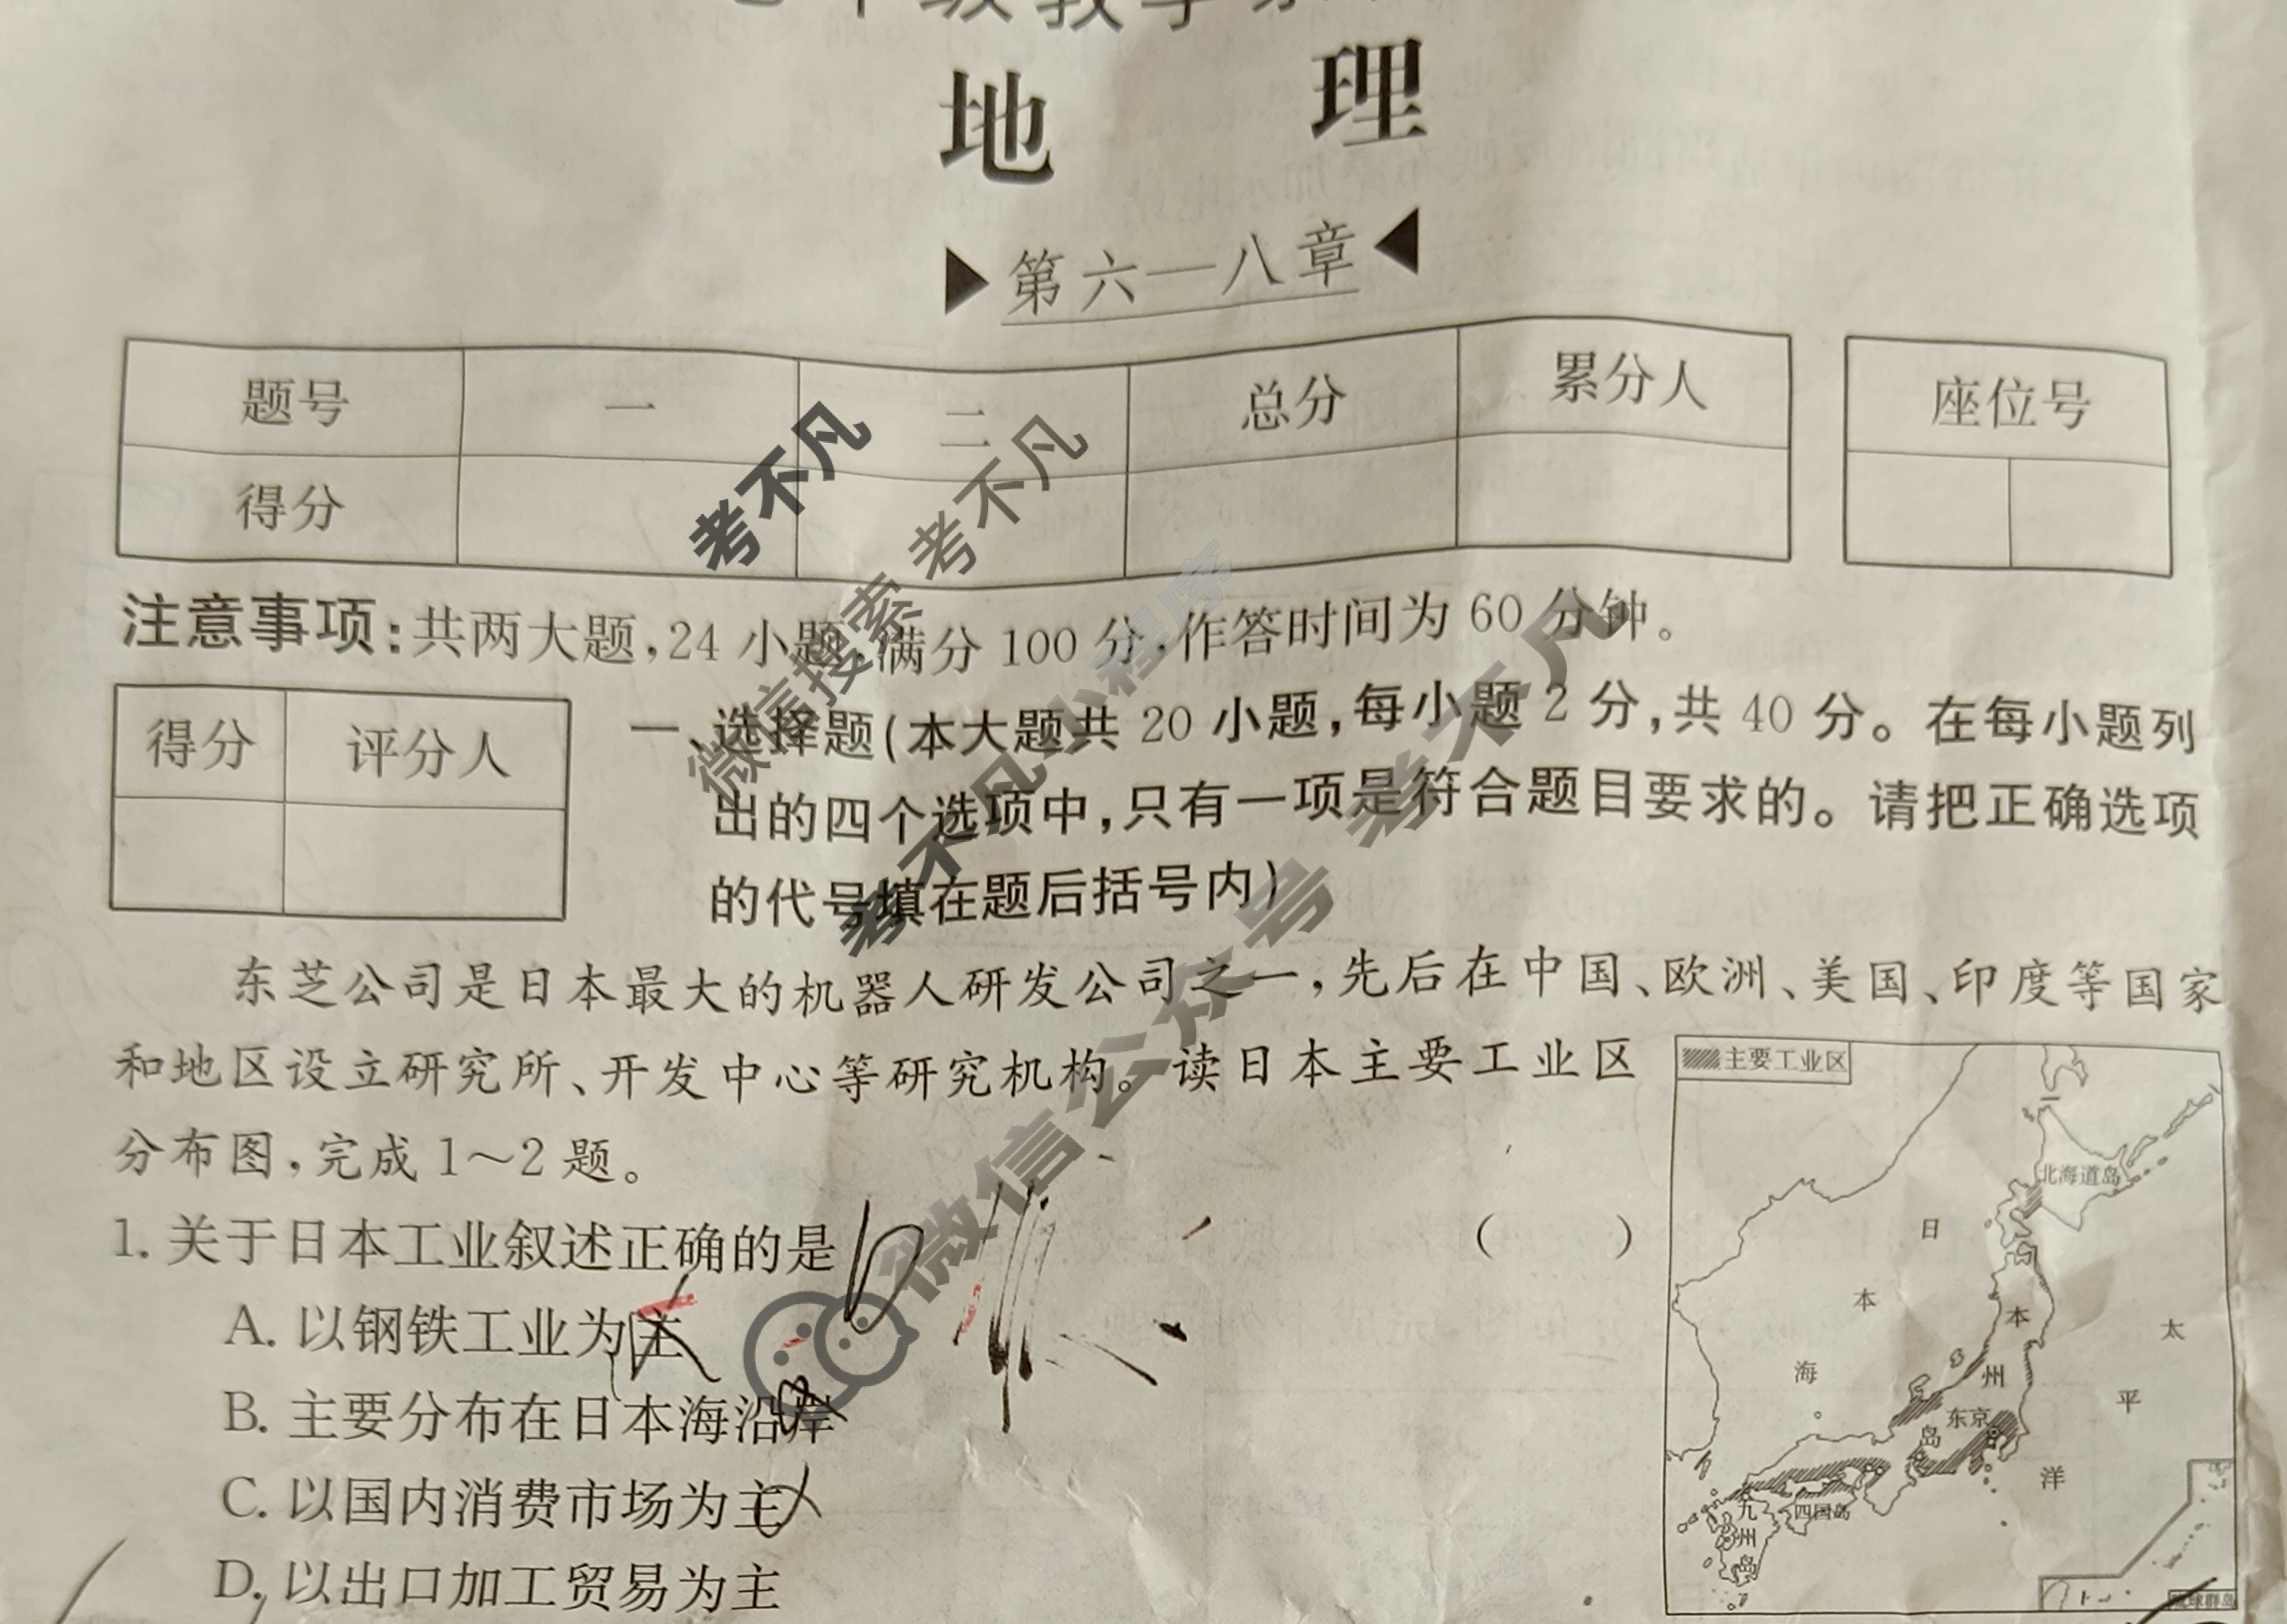 地 理
第六—八章
题号 一 二 总分 累分人 座位号
得分
注意事项:共两大题,24小题,满分100分,作答时间为60分钟。
得分 评分人
一、选择题(本大题共20小题,每小题2分,共40分。在每小题列
出的四个选项中,只有一项是符合题目要求的。请把正确选项
的代号填在题后括号内)
东芝公司是日本最大的机器人研发公司之一,先后在中国、欧洲、美国、印度等国家
和地区设立研究所、开发中心等研究机构。读日本主要工业区
分布图,完成1~2题。
1. 关于日本工业叙述正确的是 ( )
A. 以钢铁工业为主
B. 主要分布在日本海沿岸
C. 以国内消费市场为主
D. 以出口加工贸易为主
主要工业区
北海道岛
日本海
本州岛
东京
太平洋
四国岛
九州岛
考不凡
微信搜索 考不凡
考不凡小程序
微信公众号 考不凡